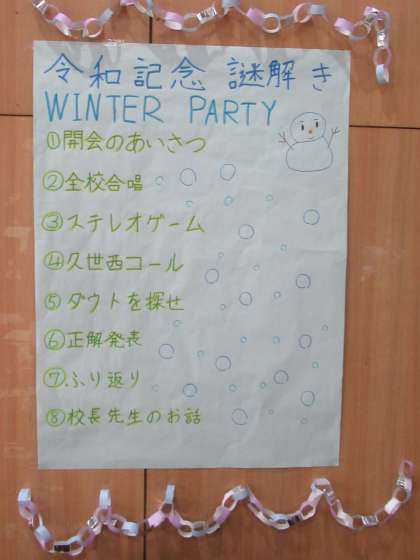 令和記念 謎解き
WINTER PARTY
①開会のあいさつ
②全校合唱
③ステレオゲーム
④久世西コール
⑤ダウトを探せ
⑥正解発表
⑦ふり返り
⑧校長先生のお話